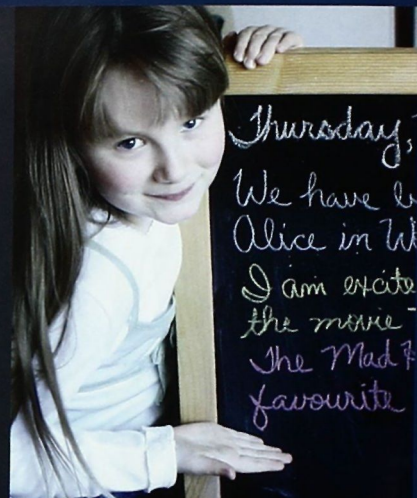 Thursday,
We have
Alice in
I am excite
the movie
The Mad
favourite